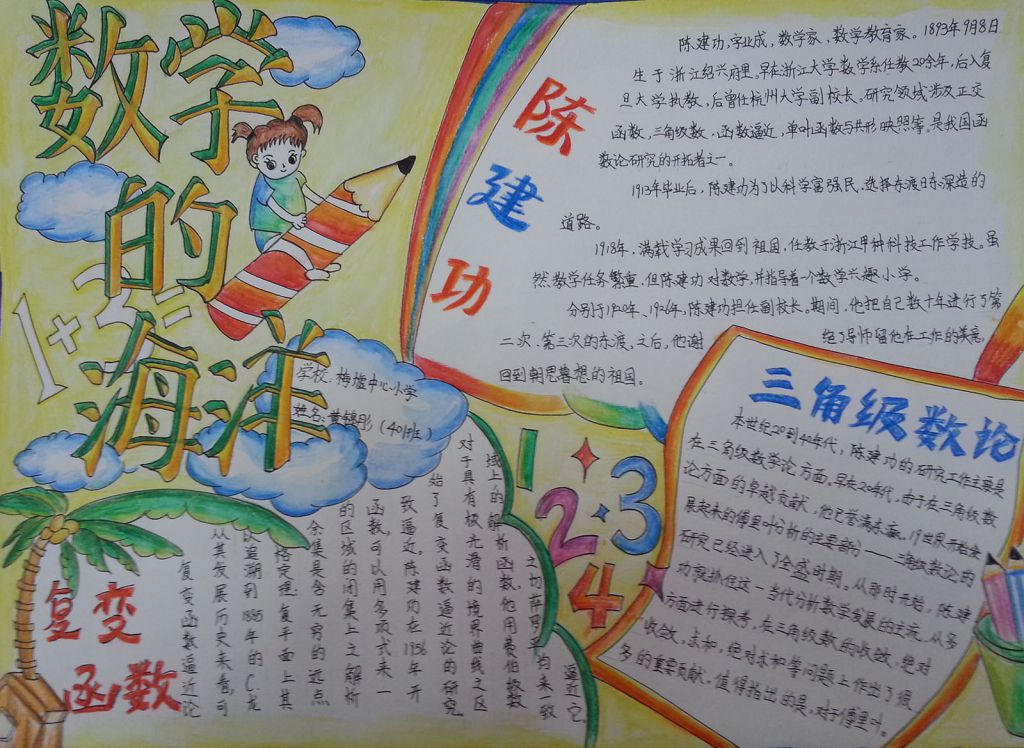 数学
的
海洋
1+2=
学校:梅墟中心小学
姓名:黄锦彤(401班)
陈
建
功
陈建功,字业成,数学家、数学教育家。1893年9月8日
生于浙江绍兴府里,早在浙江大学数学系任教20余年,后入复
旦大学执教,后曾任杭州大学副校长。研究领域涉及正交
函数,三角级数、函数逼近,单叶函数与共形映照等。是我国函
数论研究的开拓者之一。
1913年毕业后,陈建功为了以科学富强民、选择东渡日本深造的
道路。
1918年,满载学习成果回到祖国,任教于浙江甲种科技工作学技。虽
然数学任务繁重,但陈建功对数学,并指导着一个数学兴趣小学。
分别于1920年、1926年,陈建功担任副校长。期间,他把自己数十年进行了第
二次、第三次的东渡。之后,他谢
绝了导师留他在工作的美意,
回到朝思暮想的祖国。
三角级数论
本世纪20到40年代,陈建功的研究工作主要是
在三角级数学论方面。早在20年代,由于在三角级数
论方面的卓越贡献,他已誉满东瀛。19世界开始发
展起来的傅里叶分析的主要部分——三角级数论的
研究已经进入了全盛时期。从那时开始,陈建
功就抓住这一当代分析数学发展的主流,从多
方面进行探考,在三角级数的收敛、绝对
收敛,求和,绝对求和等问题上作出了很
多的重要贡献。值得指出的是,对于傅里叶。
1
2
3
4
复变
函数
复变函数逼近论
从其发展历史来看,可
以追溯到1885年的C·龙
格定理:复平面上其
余集是含无穷的远点
的区域的闭集上之解析
函数,可以用多项式来一
致逼近。陈建功在1956年开
始了复变函数逼近论的研究
对于具有极光滑的境界曲线之区
域上的解析函数,他用费伯级数
之切萨罗平均来一致
逼近它。